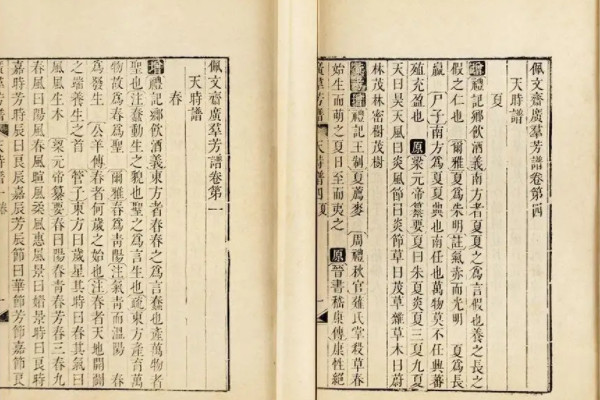 佩文齋廣羣芳譜卷第四
天時譜
夏
增禮記鄉飲酒義南方者夏夏之爲言假也養之長之
假之仁也 爾雅夏爲朱明註氣赤而光明 夏爲長
贏 尸子南方爲夏夏興也南任也萬物莫不任興蕃
殖充盈也 原梁元帝纂要夏曰朱夏炎夏三夏九夏
天曰昊天風曰炎風節曰炎節草曰茂草雜草木曰蔚
林茂林密樹茂樹
彙考增禮記王制夏薦麥 周禮秋官薙氏掌殺草春
始生而萌之夏日至而夷之 原晉書嵇康傳康性絕
廣羣芳譜 天時譜四 夏 一
佩文齋廣羣芳譜卷第一
天時譜
春
增禮記鄉飲酒義東方者春春之爲言蠢也產萬物者
聖也注蠢動生之貌也聖之爲言生也疏東方產育萬
物故爲春爲聖 爾雅春爲青陽注氣青而溫陽 春
爲發生 公羊傳春者何歲之始也注春者天地開闢
之端養生之首 管子東方曰歲星其時曰春其氣曰
風風生木 梁元帝纂要春曰陽春青春芳春三春九
春風曰陽風春風暄風柔風惠風景曰媚景時曰良時
嘉時芳時辰曰良辰嘉辰芳辰節曰華節芳節嘉節良